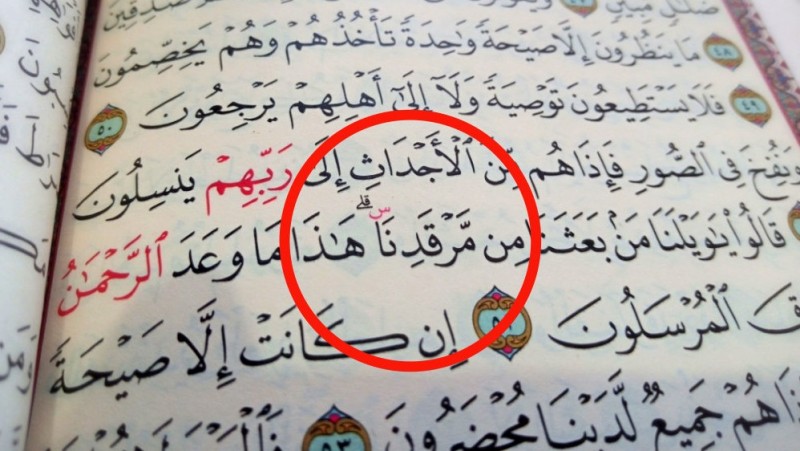 ضَلَٰلٍ مُّبِينٍ
٤٨ مَا يَنظُرُونَ إِلَّا صَيْحَةً وَٰحِدَةً تَأْخُذُهُمْ وَهُمْ يَخِصِّمُونَ
٤٩ فَلَا يَسْتَطِيعُونَ تَوْصِيَةً وَلَآ إِلَىٰٓ أَهْلِهِمْ يَرْجِعُونَ ٥٠
وَنُفِخَ فِي ٱلصُّورِ فَإِذَا هُم مِّنَ ٱلْأَجْدَاثِ إِلَىٰ رَبِّهِمْ يَنسِلُونَ
قَالُوا۟ يَٰوَيْلَنَا مَنۢ بَعَثَنَا مِن مَّرْقَدِنَا ۜ ۗ هَٰذَا مَا وَعَدَ ٱلرَّحْمَٰنُ
ٱلْمُرْسَلُونَ إِن كَانَتْ إِلَّا صَيْحَةً
هُمْ جَمِيعٌ لَّدَيْنَا مُحْضَرُونَ
٥٣